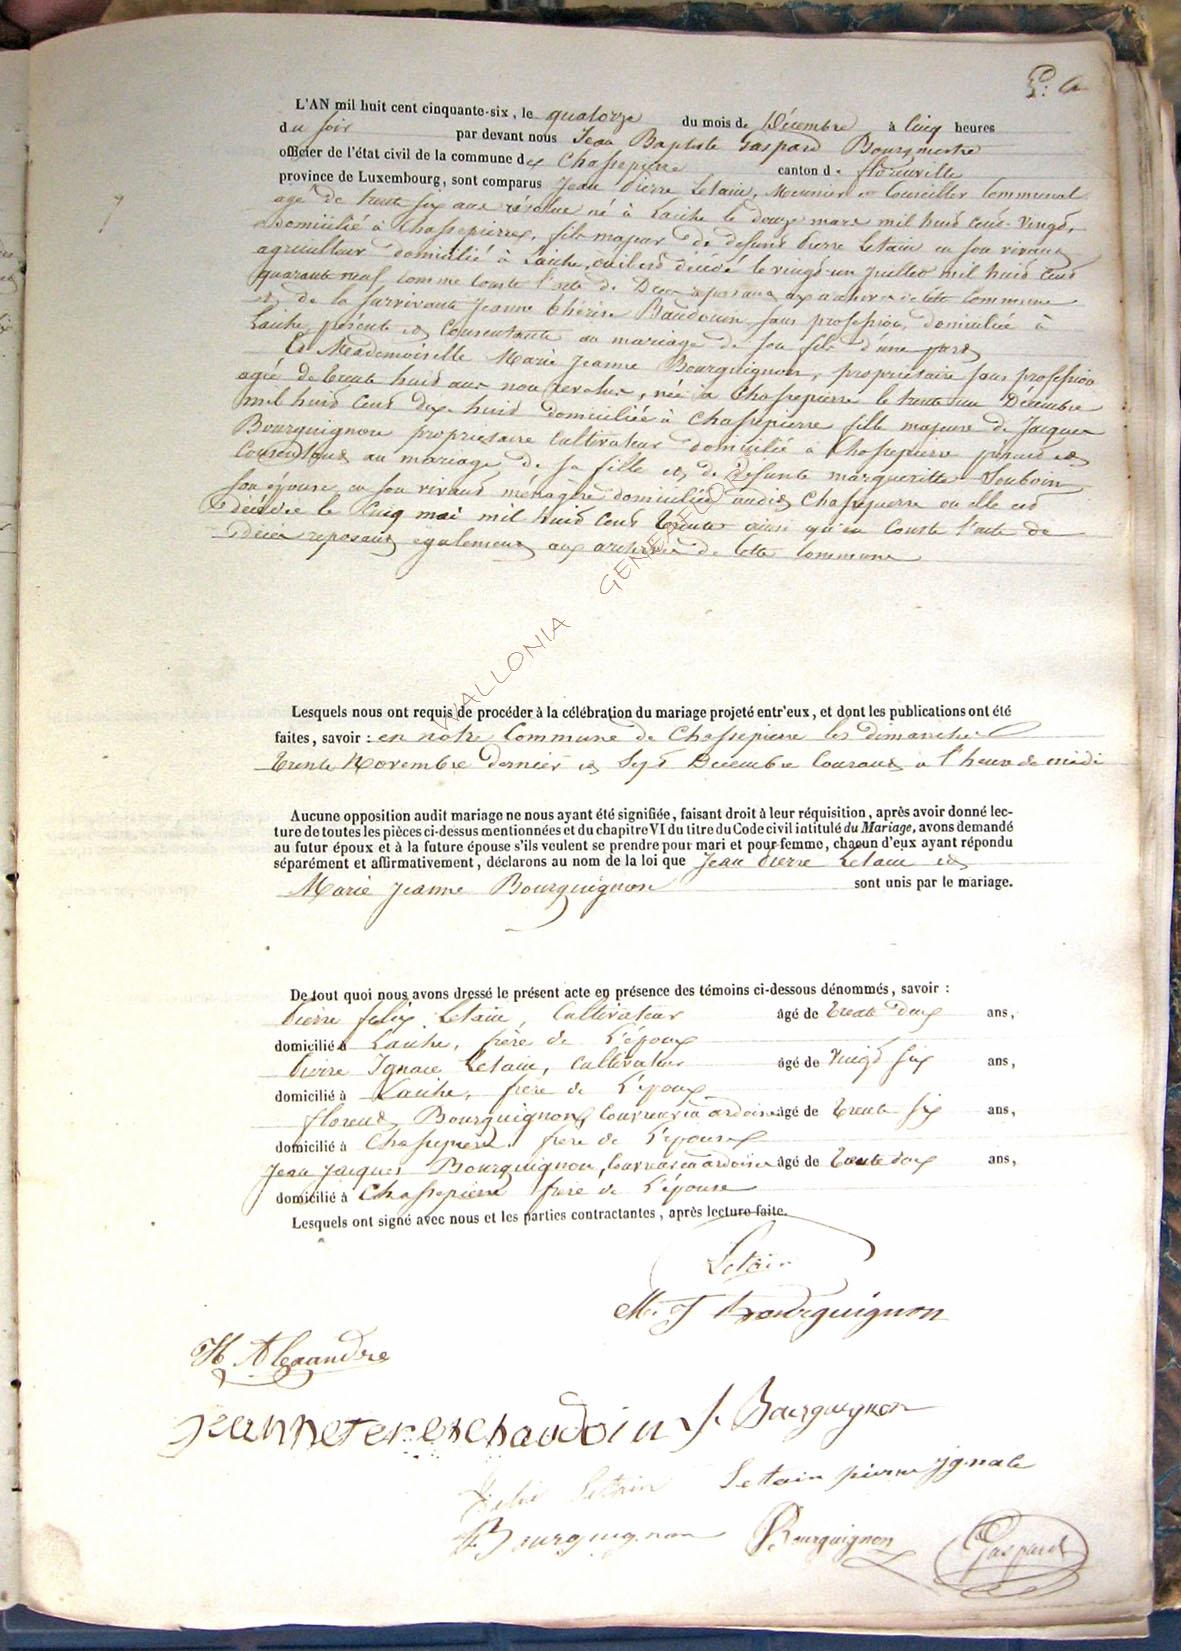 L'AN mil huit cent cinquante-six, le quatorze du mois de Décembre à Cinq heures
du soir par devant nous Jean Baptiste Gaspard Bourgmestre
officier de l'état civil de la commune de Chassepierre canton de florenville
province de Luxembourg, sont comparus Jean Pierre Letain, Meunier et Conseiller Communal
agé de trente six ans révolus né à Laiche le douze mars mil huid cend vingd,
domicilié à Chassepierre, fils majeur de défund Pierre Letain en son vivand
agriculteur domicilié à Laiche, ou il est décédé le vingd un juillet mil huid cend
quarante neuf comme conste l'acte de Décès reposand aux archives de cette Commune
et de la survivante Jeanne thérèse Baudouin sans profession, domiciliée à
Laiche présente et Consentante au mariage de son fils d'une pard
Et Mademoiselle Marie Jeanne Bourguignon, propriétaire sans profession
agée de trente huid ans non revolus, née à Chassepierre le trente un Décembre
mil huid cend dix huid domiciliée à Chassepierre fille majeure de Jacques
Bourguignon propriétaire cultivateur domicilié à Chassepierre présend et
Consentand au mariage de sa fille et de défunte margueritte
son épouse en son vivand ménagère domiciliée audit Chassepierre ou elle est
décédée le cinq mai mil huid cend trente ainsi qu'en Conste l'acte de
décès reposand également aux archives de Cette Commune
WALLONIA GENEAFLOR
Lesquels nous ont requis de procéder à la célébration du mariage projeté entr'eux, et dont les publications ont été
faites, savoir : en notre Commune de Chassepierre les dimanches
trente Novembre dernier et Sept Décembre Courand à l'heure de midi
Aucune opposition audit mariage ne nous ayant été signifiée, faisant droit à leur réquisition, après avoir donné lec-
ture de toutes les pièces ci-dessus mentionnées et du chapitre VI du titre du Code civil intitulé du Mariage, avons demandé
au futur époux et à la future épouse s'ils veulent se prendre pour mari et pour femme, chacun d'eux ayant répondu
séparément et affirmativement, déclarons au nom de la loi que Jean Pierre Letain et
Marie Jeanne Bourguignon sont unis par le mariage.
De tout quoi nous avons dressé le présent acte en présence des témoins ci-dessous dénommés, savoir :
Pierre felix Letain, Cultivateur âgé de trente deux ans,
domicilié à Laiche, frère de l'époux
Pierre Ignace Letain, Cultivateur âgé de vingd six ans,
domicilié à Laiche, frère de l'époux
florend Bourguignon, Couvreur en ardoises âgé de trente six ans,
domicilié à Chassepierre frère de l'épouse
Jean Jacques Bourguignon, Couvreur en ardoise âgé de trente deux ans,
domicilié à Chassepierre frère de l'épouse
Lesquels ont signé avec nous et les parties contractantes, après lecture faite.
Letain
M. J Bourguignon
H Alexandre
Jeanne Terese baudoin J. Bourguignon
Felix Letain Lettain pierre ignace
Bourguignon Bourguignon Gaspard